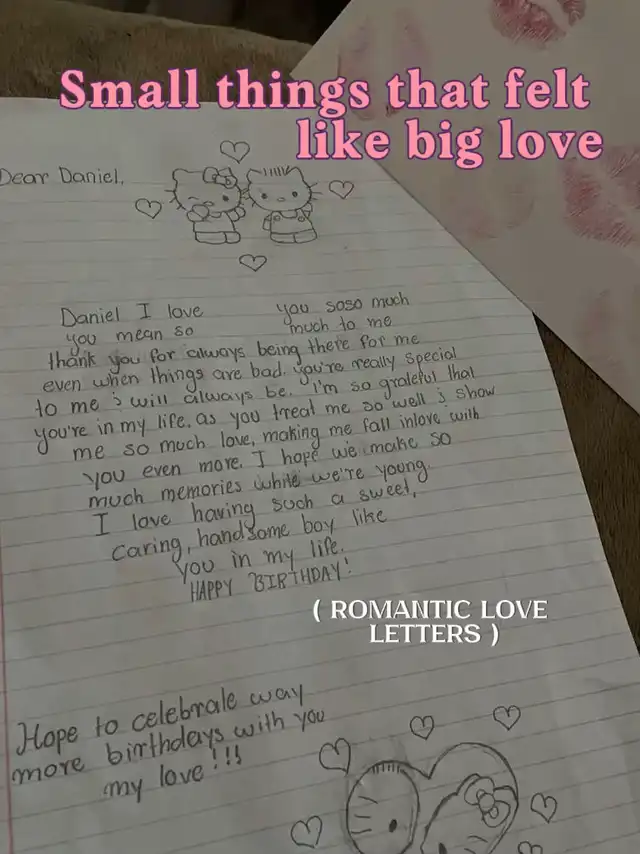 Small things that felt
like big love
Dear Daniel,
Daniel I love you soso much
you mean so much to me
thank you for always being there for me
even when things are bad. you're really special
to me & will always be. I'm so grateful that
you're in my life. as you treat me so well & show
me so much love, making me fall inlove with
you even more. I hope we make so
much memories while we're young.
I love having such a sweet,
caring, handsome boy like
you in my life.
HAPPY BIRTHDAY!
( ROMANTIC LOVE
LETTERS )
Hope to celebrate way
more birthdays with you
my love!!!